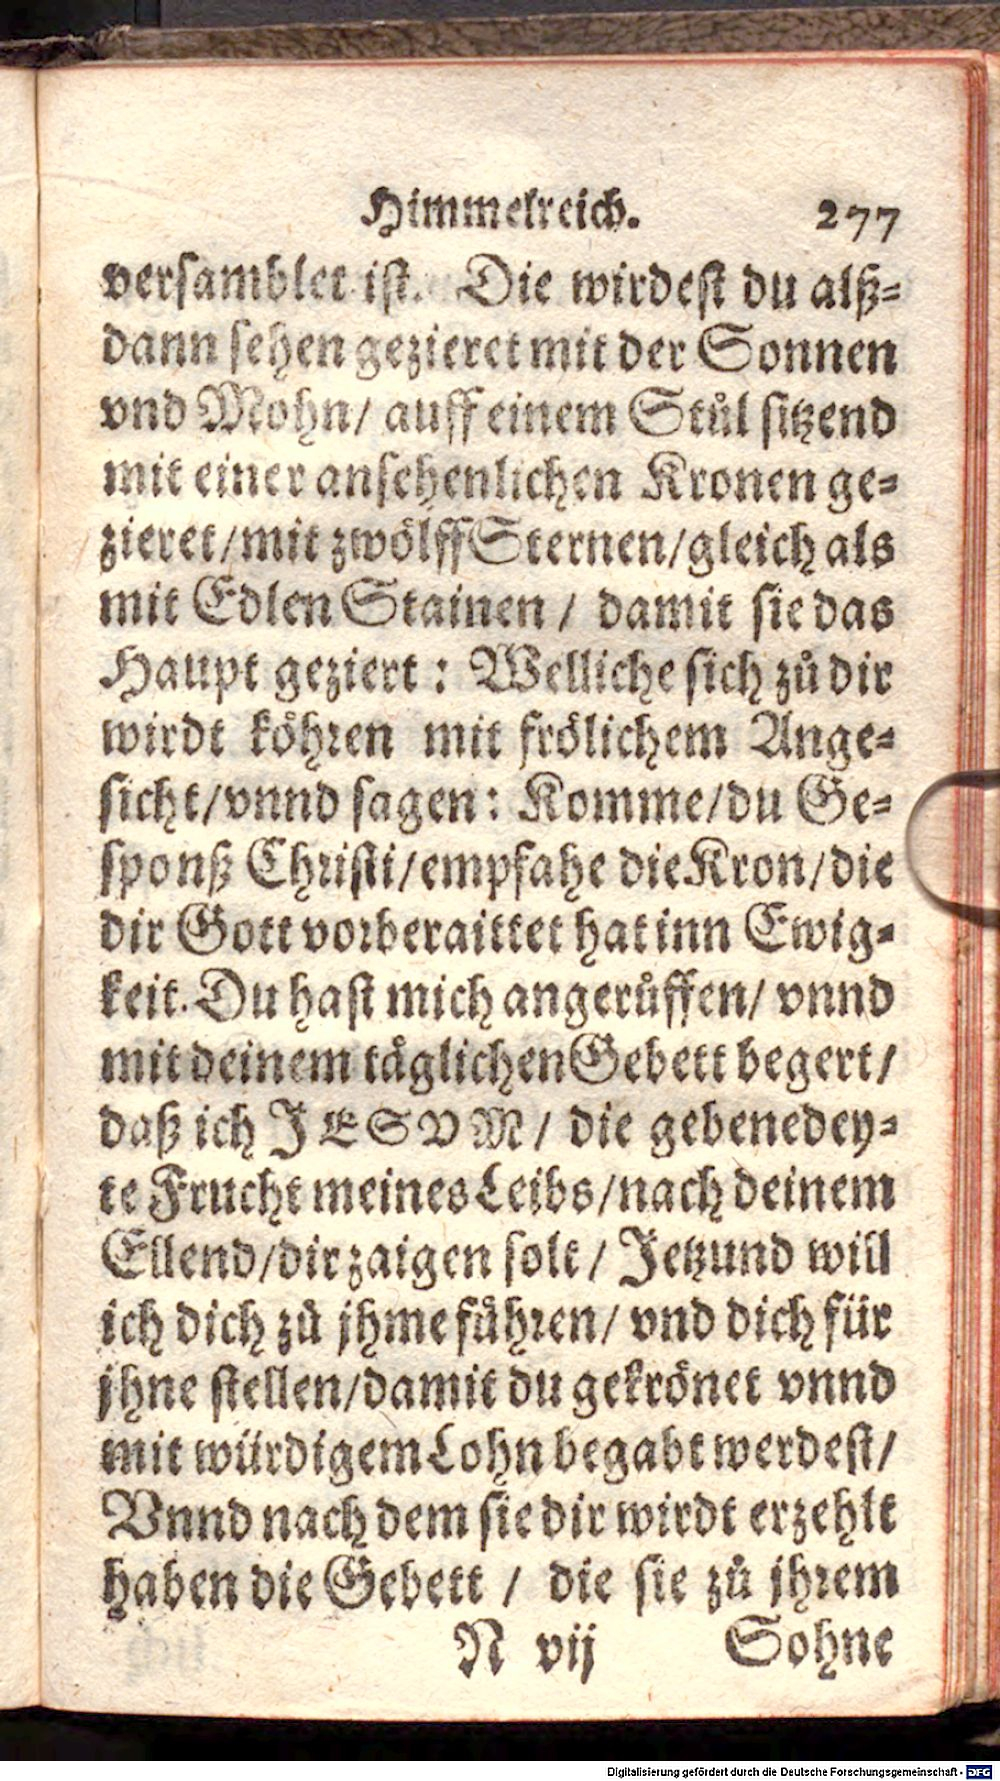 Himmelreich. 277
versamblet ist. Die wirdest du alß=
dann sehen gezieret mit der Sonnen
vnd Mohn/ auff einem Stůl sitzend
mit einer ansehenlichen Kronen ge=
zieret/mit zwölff Sternen/gleich als
mit Edlen Stainen / damit sie das
Haupt geziert: Welliche sich zů dir
wirdt köhren mit frölichem Ange=
sicht/vnnd sagen: Komme/du Ge=
sponß Christi/empfahe die Kron/die
dir Gott vorberaittet hat inn Ewig=
keit. Du hast mich angerůffen/ vnnd
mit deinem täglichen Gebett begert/
daß ich JESVM/ die gebenedey=
te Frucht meines Leibs/nach deinem
Ellend/dir zaigen solt / Jetzund will
ich dich zů jhme führen/ vnd dich für
jhne stellen/damit du gekrönet vnnd
mit würdigem Lohn begabt werdest/
Vnnd nach dem sie dir wirdt erzehlt
haben die Gebett / die sie zů jhrem
N vij Sohne
Digitalisierung gefördert durch die Deutsche Forschungsgemeinschaft - DFG